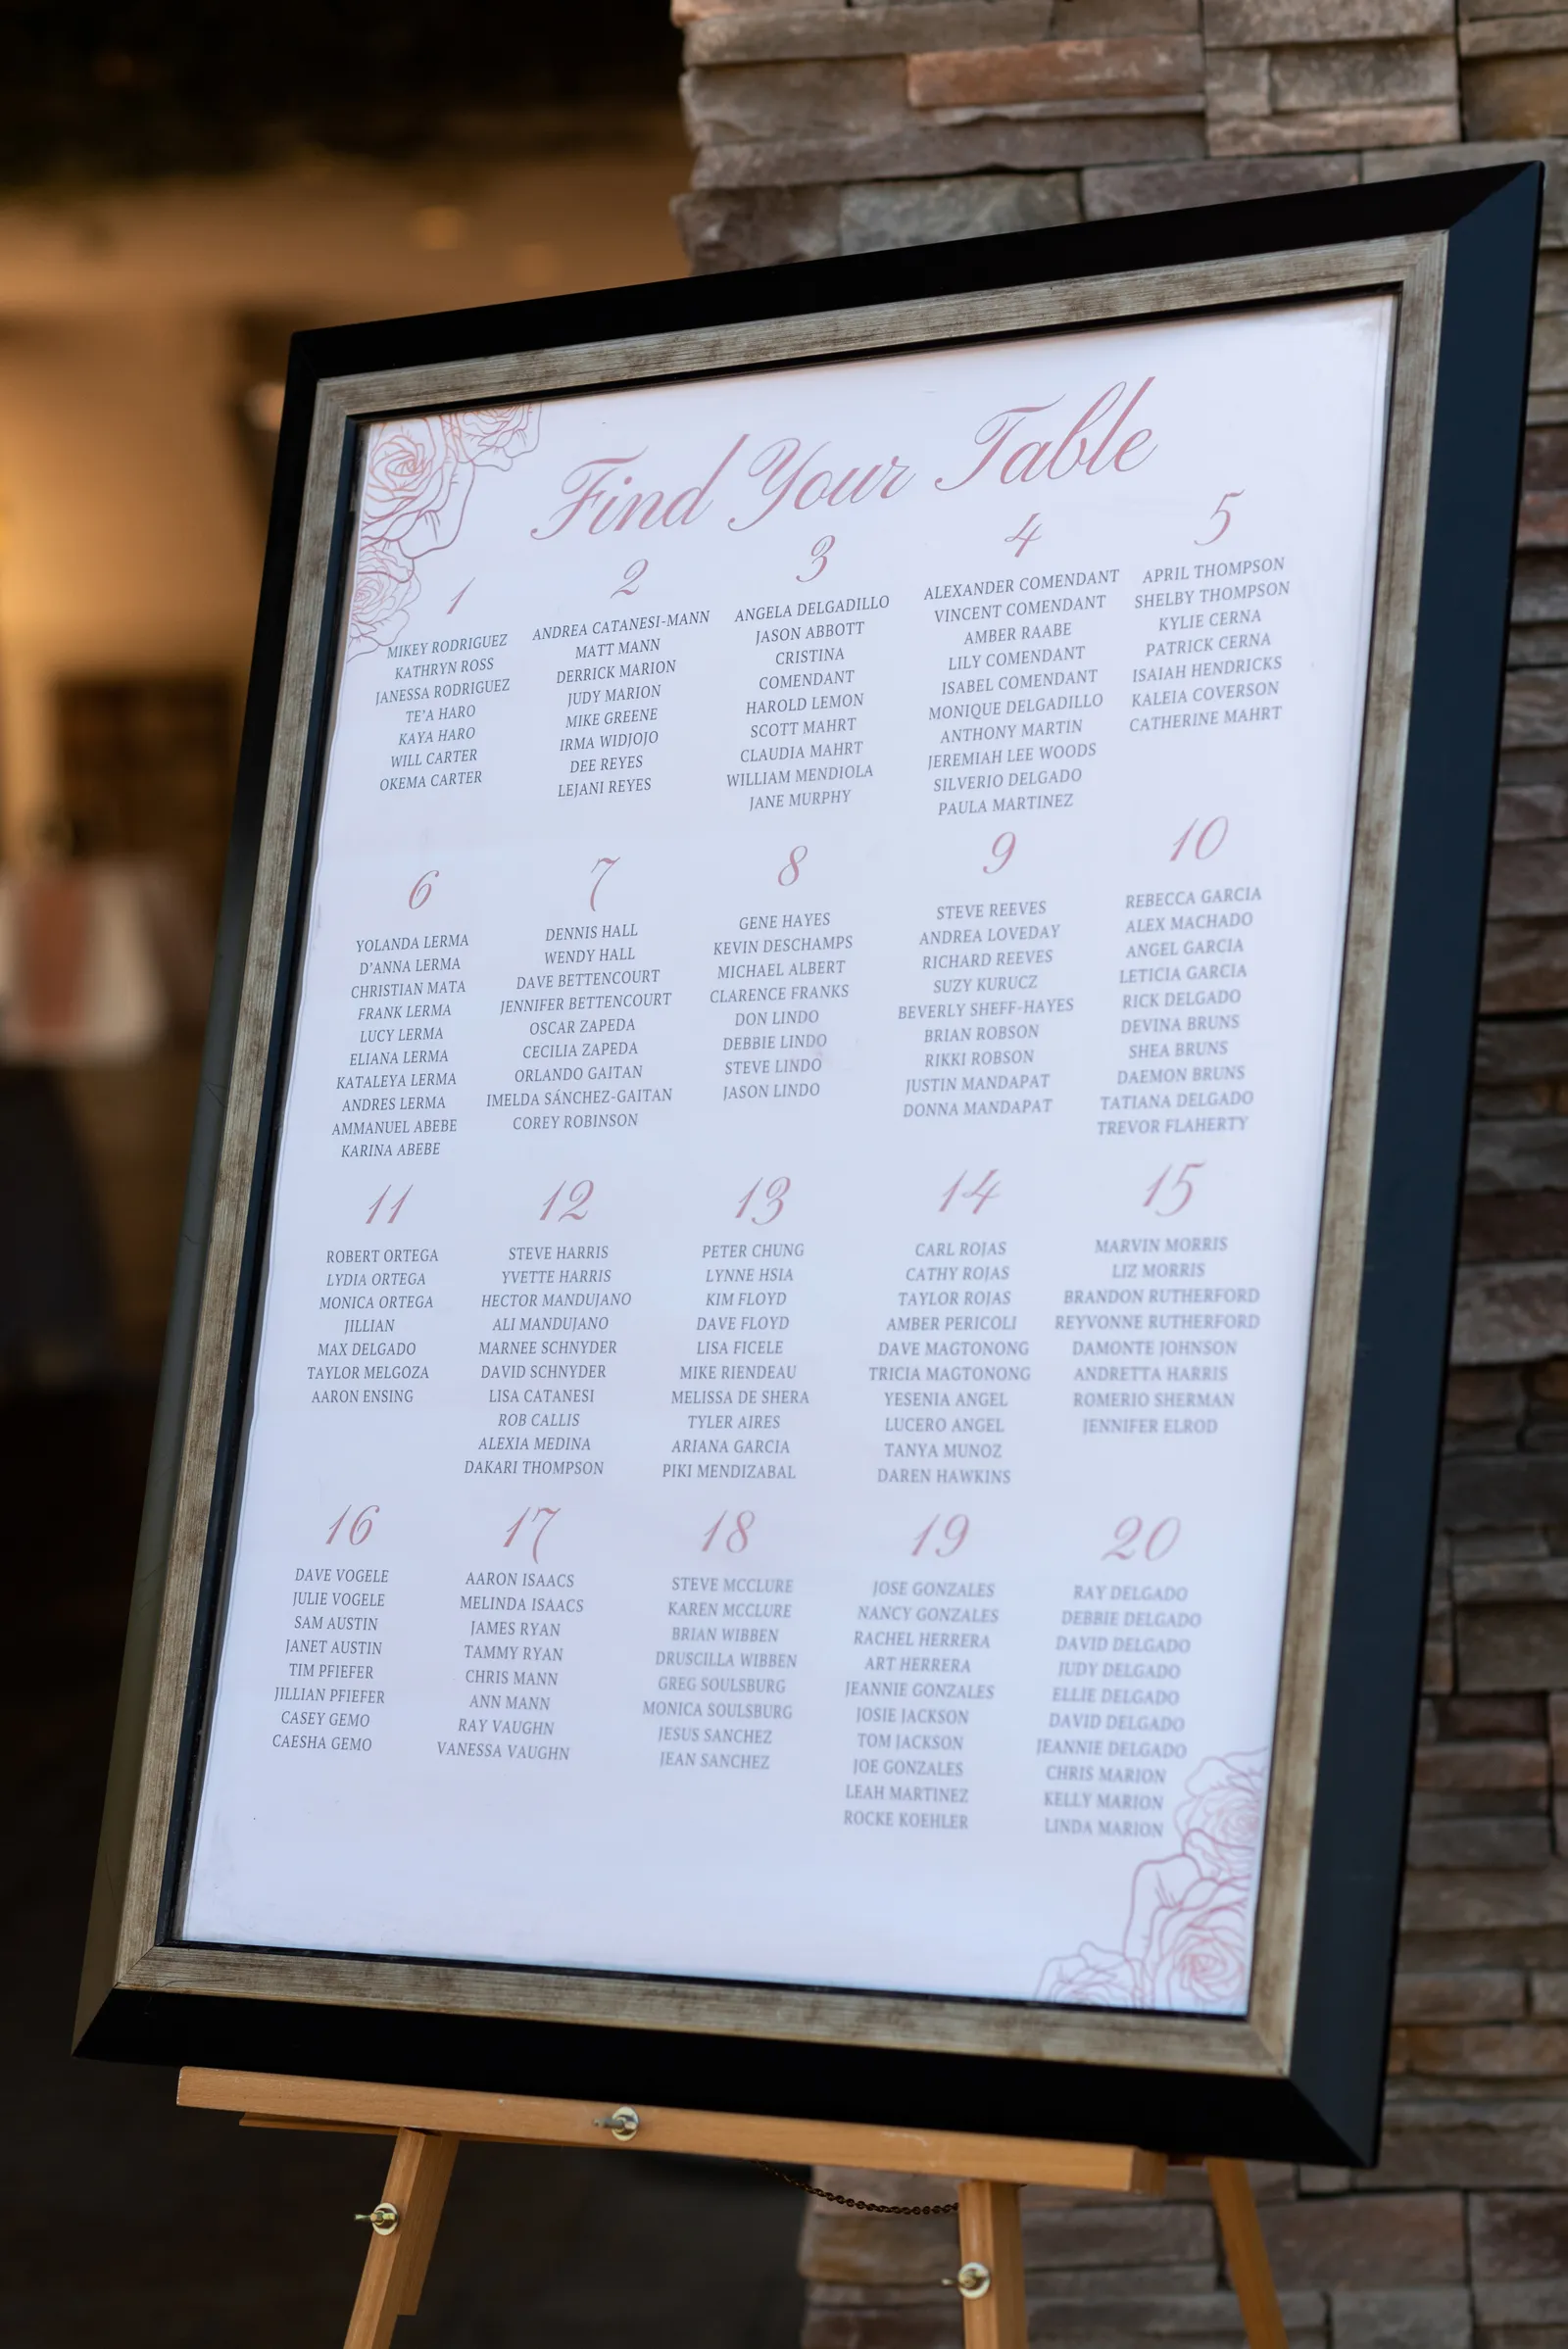 Find Your Table
1
MIKEY RODRIGUEZ
KATHRYN ROSS
JANESSA RODRIGUEZ
TE'A HARO
KAYA HARO
WILL CARTER
OKEMA CARTER
2
ANDREA CATANESI-MANN
MATT MANN
DERRICK MARION
JUDY MARION
MIKE GREENE
IRMA WIDJOJO
DEE REYES
LEJANI REYES
3
ANGELA DELGADILLO
JASON ABBOTT
CRISTINA
COMENDANT
HAROLD LEMON
SCOTT MAHRT
CLAUDIA MAHRT
WILLIAM MENDIOLA
JANE MURPHY
4
ALEXANDER COMENDANT
VINCENT COMENDANT
AMBER RAABE
LILY COMENDANT
ISABEL COMENDANT
MONIQUE DELGADILLO
ANTHONY MARTIN
JEREMIAH LEE WOODS
SILVERIO DELGADO
PAULA MARTINEZ
5
APRIL THOMPSON
SHELBY THOMPSON
KYLIE CERNA
PATRICK CERNA
ISAIAH HENDRICKS
KALEIA COVERSON
CATHERINE MAHRT
6
YOLANDA LERMA
D'ANNA LERMA
CHRISTIAN MATA
FRANK LERMA
LUCY LERMA
ELIANA LERMA
KATALEYA LERMA
ANDRES LERMA
AMMANUEL ABEBE
KARINA ABEBE
7
DENNIS HALL
WENDY HALL
DAVE BETTENCOURT
JENNIFER BETTENCOURT
OSCAR ZAPEDA
CECILIA ZAPEDA
ORLANDO GAITAN
IMELDA SÁNCHEZ-GAITAN
COREY ROBINSON
8
GENE HAYES
KEVIN DESCHAMPS
MICHAEL ALBERT
CLARENCE FRANKS
DON LINDO
DEBBIE LINDO
STEVE LINDO
JASON LINDO
9
STEVE REEVES
ANDREA LOVEDAY
RICHARD REEVES
SUZY KURUCZ
BEVERLY SHEFF-HAYES
BRIAN ROBSON
RIKKI ROBSON
JUSTIN MANDAPAT
DONNA MANDAPAT
10
REBECCA GARCIA
ALEX MACHADO
ANGEL GARCIA
LETICIA GARCIA
RICK DELGADO
DEVINA BRUNS
SHEA BRUNS
DAEMON BRUNS
TATIANA DELGADO
TREVOR FLAHERTY
11
ROBERT ORTEGA
LYDIA ORTEGA
MONICA ORTEGA
JILLIAN
MAX DELGADO
TAYLOR MELGOZA
AARON ENSING
12
STEVE HARRIS
YVETTE HARRIS
HECTOR MANDUJANO
ALI MANDUJANO
MARNEE SCHNYDER
DAVID SCHNYDER
LISA CATANESI
ROB CALLIS
ALEXIA MEDINA
DAKARI THOMPSON
13
PETER CHUNG
LYNNE HSIA
KIM FLOYD
DAVE FLOYD
LISA FICELE
MIKE RIENDEAU
MELISSA DE SHERA
TYLER AIRES
ARIANA GARCIA
PIKI MENDIZABAL
14
CARL ROJAS
CATHY ROJAS
TAYLOR ROJAS
AMBER PERICOLI
DAVE MAGTONONG
TRICIA MAGTONONG
YESENIA ANGEL
LUCERO ANGEL
TANYA MUNOZ
DAREN HAWKINS
15
MARVIN MORRIS
LIZ MORRIS
BRANDON RUTHERFORD
REYVONNE RUTHERFORD
DAMONTE JOHNSON
ANDRETTA HARRIS
ROMERIO SHERMAN
JENNIFER ELROD
16
DAVE VOGELE
JULIE VOGELE
SAM AUSTIN
JANET AUSTIN
TIM PFIEFER
JILLIAN PFIEFER
CASEY GEMO
CAESHA GEMO
17
AARON ISAACS
MELINDA ISAACS
JAMES RYAN
TAMMY RYAN
CHRIS MANN
ANN MANN
RAY VAUGHN
VANESSA VAUGHN
18
STEVE MCCLURE
KAREN MCCLURE
BRIAN WIBBEN
DRUSCILLA WIBBEN
GREG SOULSBURG
MONICA SOULSBURG
JESUS SANCHEZ
JEAN SANCHEZ
19
JOSE GONZALES
NANCY GONZALES
RACHEL HERRERA
ART HERRERA
JEANNIE GONZALES
JOSIE JACKSON
TOM JACKSON
JOE GONZALES
LEAH MARTINEZ
ROCKE KOEHLER
20
RAY DELGADO
DEBBIE DELGADO
DAVID DELGADO
JUDY DELGADO
ELLIE DELGADO
DAVID DELGADO
JEANNIE DELGADO
CHRIS MARION
KELLY MARION
LINDA MARION